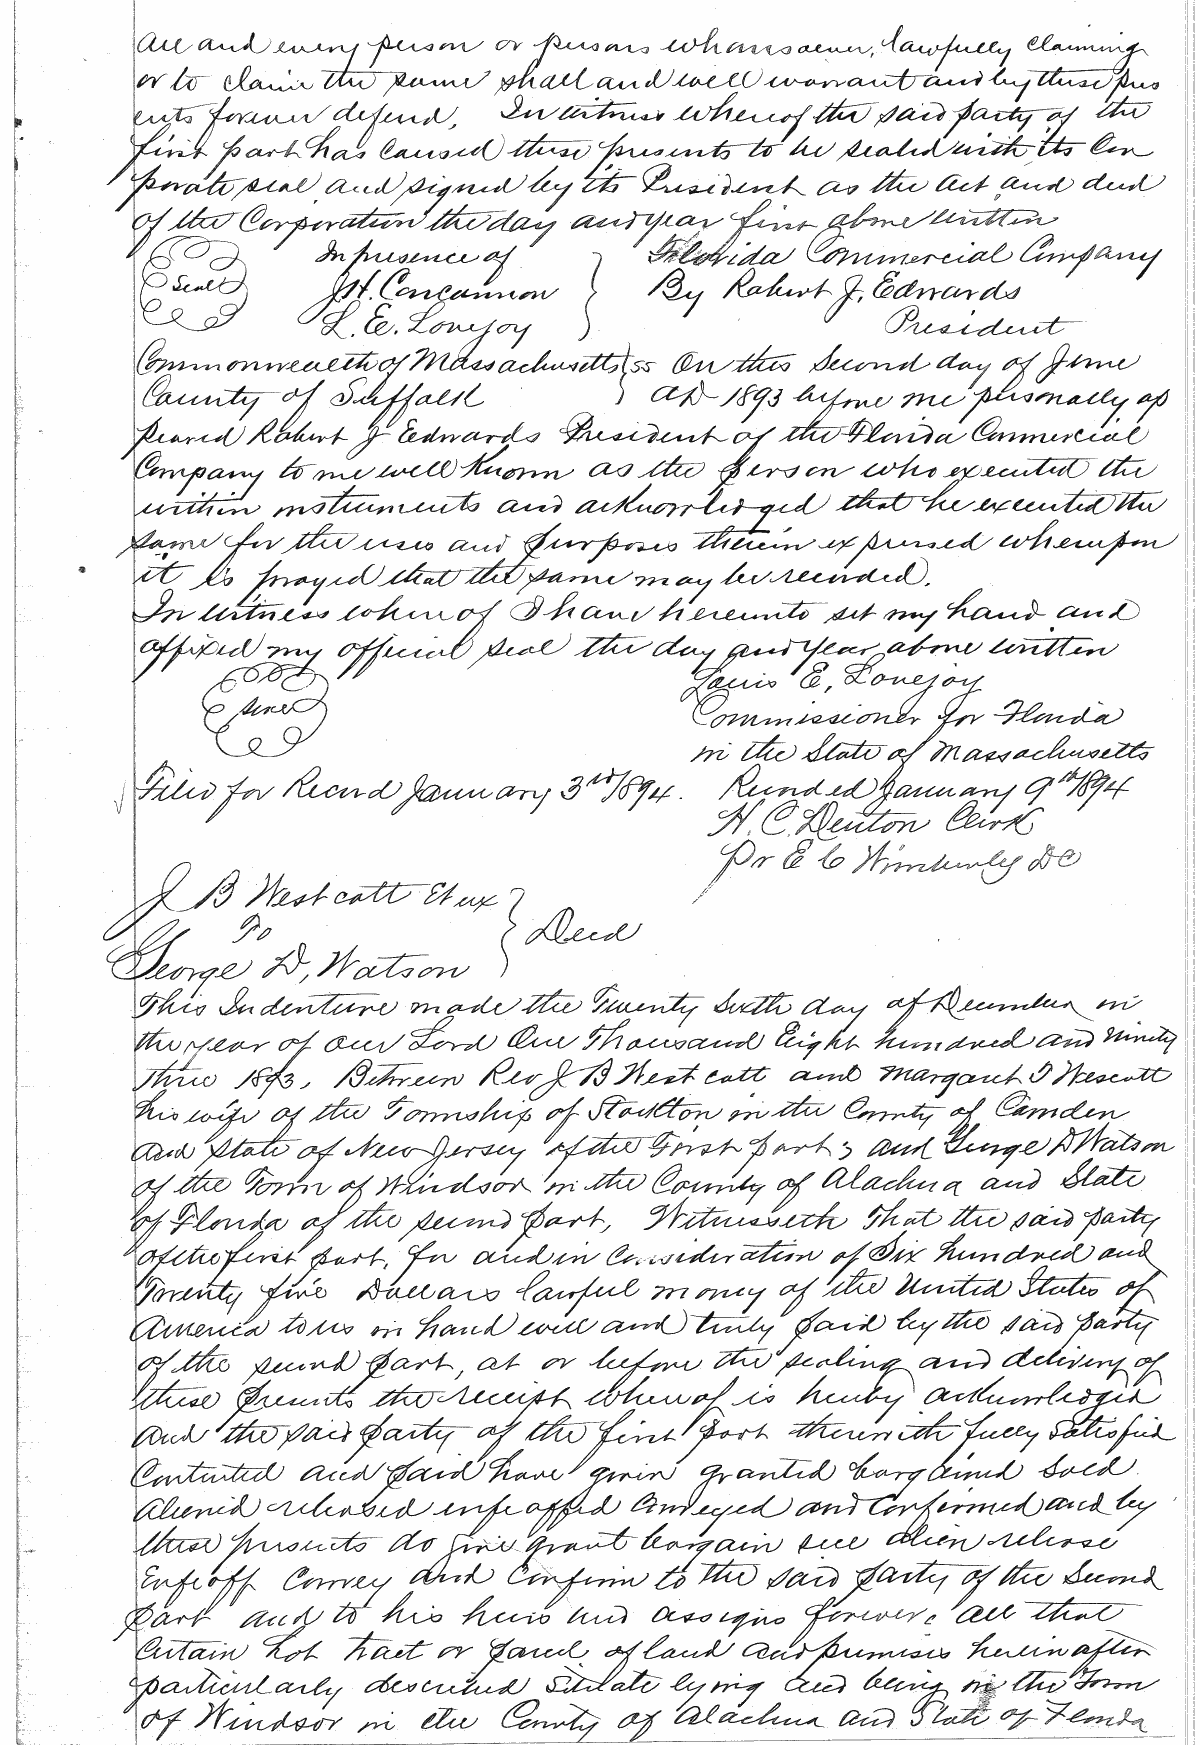 all and every person or persons whomsoever, lawfully claiming
or to claim the same shall and will warrant and by these pres
ents forever defend. In witness whereof the said party of the
first part has caused these presents to be sealed with its Cor
porate seal and signed by its President as the act and deed
of the Corporation the day and year first above written
In presence of Florida Commercial Company
Seal J.H. Concannon By Robert J. Edwards
L. E. Lovejoy President
Commonwealth of Massachusetts ss On this Second day of June
County of Suffolk AD 1893 before me personally ap
peared Robert J Edwards President of the Florida Commercial
Company to me well known as the person who executed the
within instruments and acknowledged that he executed the
same for the uses and purposes therein expressed whereupon
it is prayed that the same may be recorded.
In witness whereof I have hereunto set my hand and
affixed my official seal the day and year above written
Louis E, Lovejoy
Seal Commissioner for Florida
in the State of Massachusetts
Filed for Record January 3rd/1894. Recorded January 9th/1894
H. C. Denton Clerk
Pr E C Wimberley DC
J B Westcott Et ux
To Deed
George D, Watson
This Indenture made the Twenty Sixth day of December in
the year of our Lord One Thousand Eight hundred and ninety
three 1893. Between Rev J B Westcott and Margaret J Wescott
his wife of the Township of Stockton in the County of Camden
and State of New Jersey of the First part; and George D Watson
of the Town of Windsor in the County of Alachua and State
of Florida of the second part, Witnesseth That the said party
of the first part, for and in Consideration of Six hundred and
Twenty five Dollars lawful money of the United States of
America to us in hand well and truly paid by the said party
of the second part, at or before the sealing and delivery of
these presents the receipt whereof is hereby acknowledged
and the said party of the first part therewith fully satisfied
Contented and paid have given granted bargained sold
aliened released enfeoffed Conveyed and Confirmed and by
these presents do give grant bargain sell alien release
Enfeoff Convey and Confirm to the said party of the Second
part and to his heirs and assigns forever. all that
Certain Lot Tract or parcel of land and premises herein after
particularly described Situate lying and being in the Town
of Windsor in the County of Alachua and State of Florida